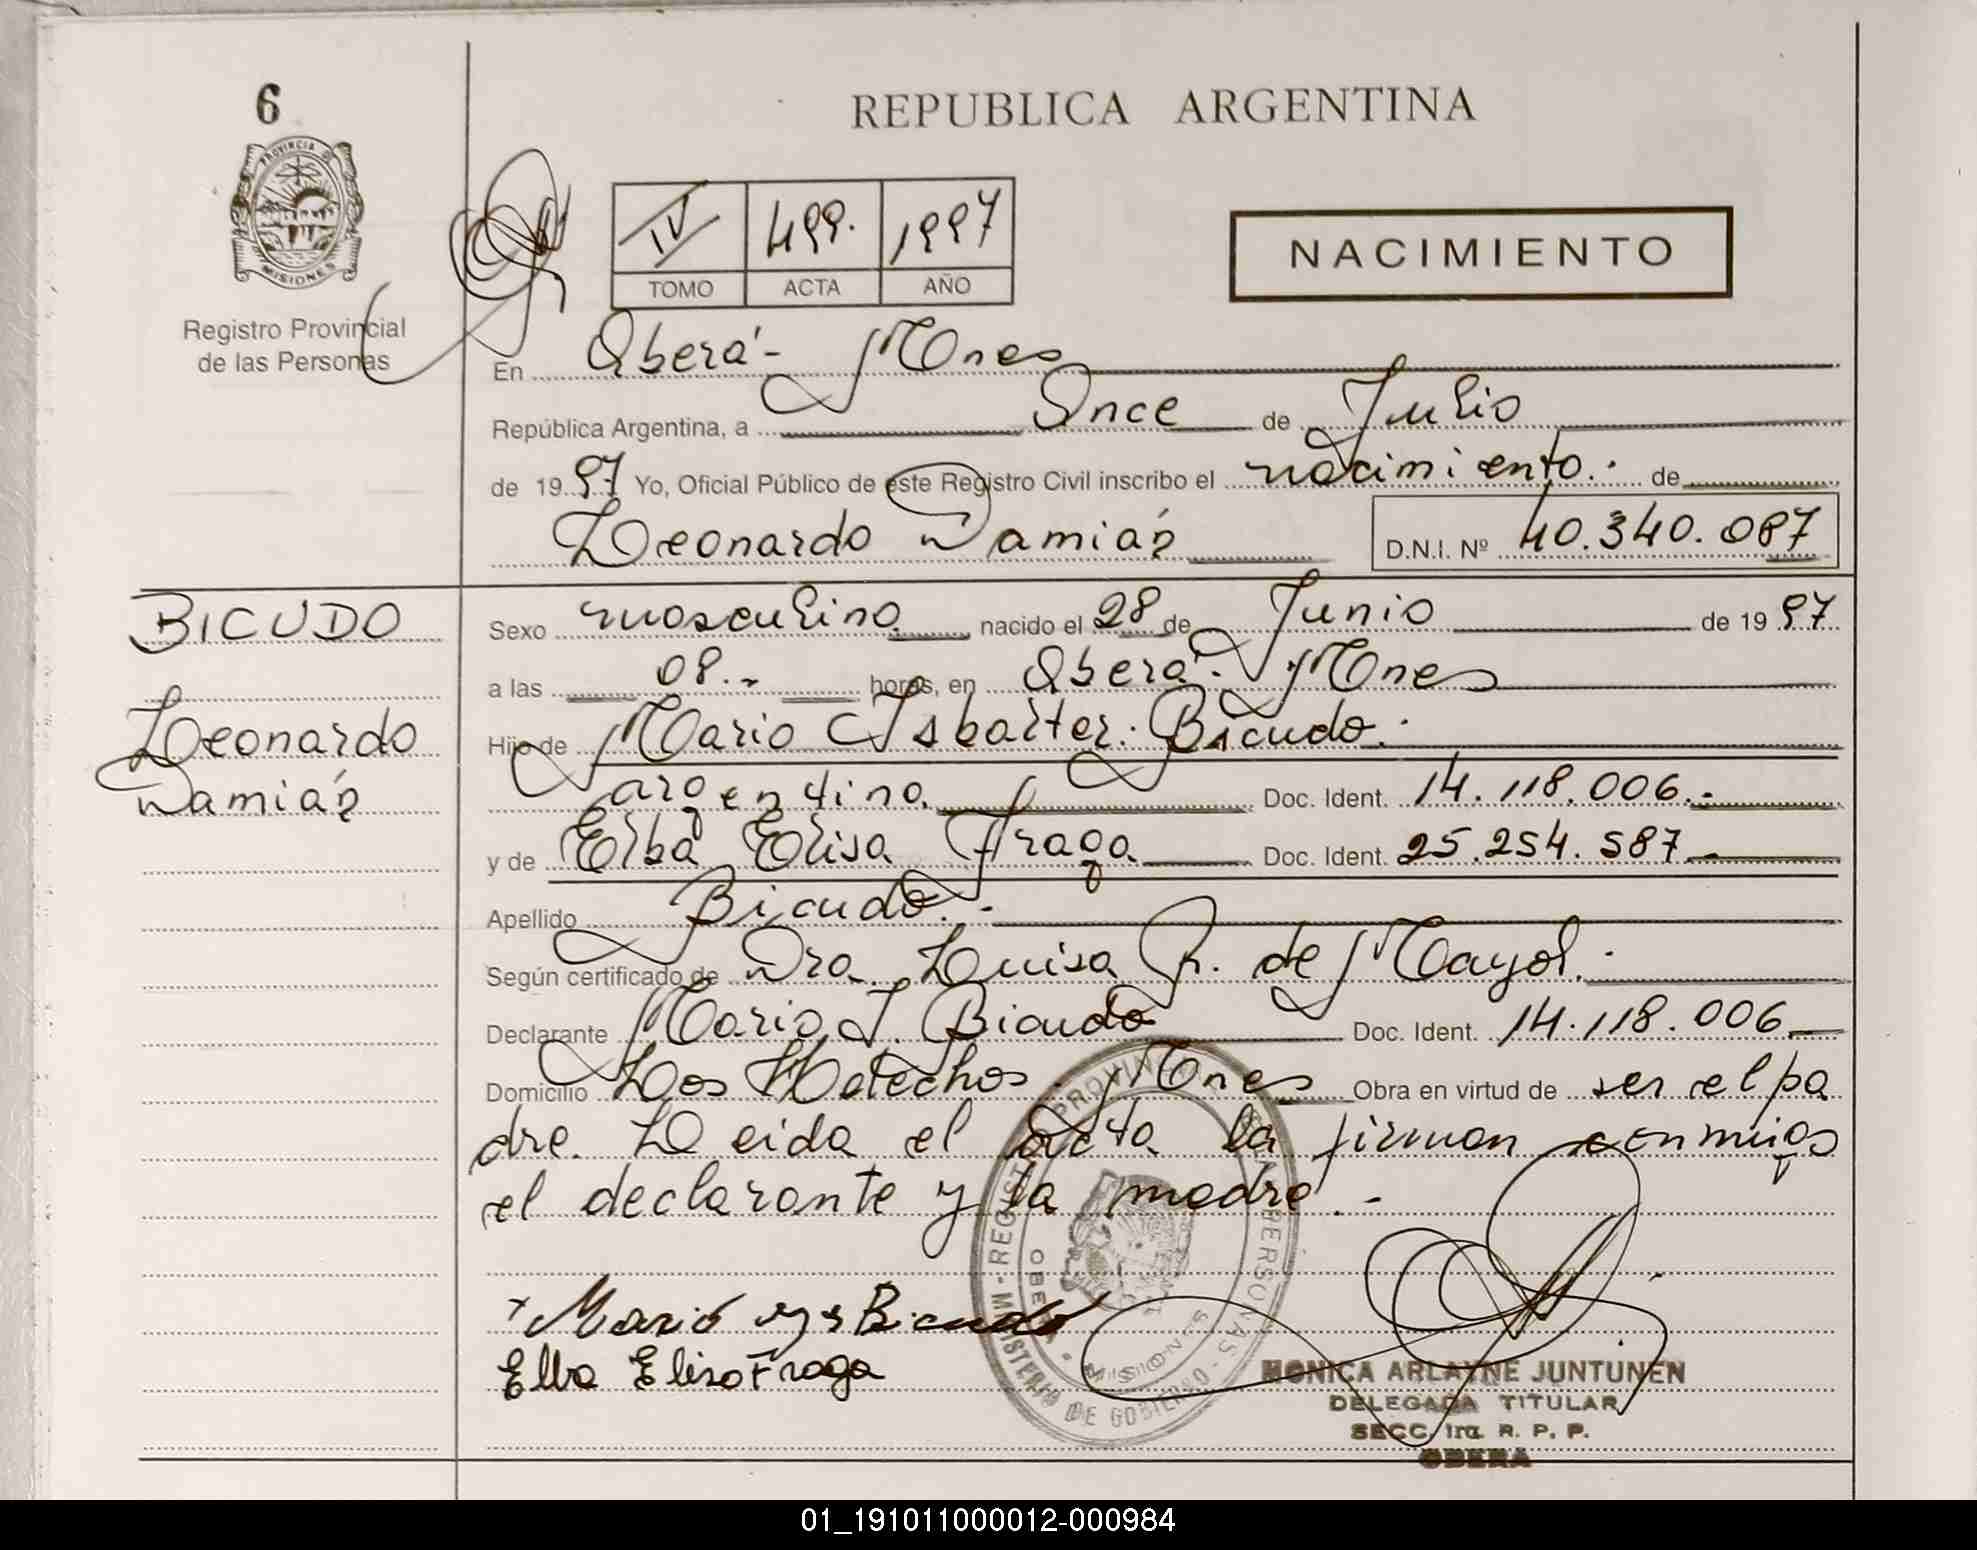 6
REPUBLICA ARGENTINA
PROVINCIA DE MISIONES
Registro Provincial
de las Personas
IV 499. 1997
TOMO ACTA AÑO
NACIMIENTO
En Oberá - Mnes
República Argentina, a Once de Julio
de 1997 Yo, Oficial Público de este Registro Civil inscribo el nacimiento. de
Leonardo Damián D.N.I. Nº 40.340.087
BICUDO
Leonardo
Damián
Sexo masculino nacido el 28 de Junio de 1997
a las 08.- horas, en Oberá. Mnes
Hijo de Mario Bicudo.
argentino. Doc. Ident. 14.118.006.-
y de Elba Elisa Fraga Doc. Ident. 25.254.587.-
Apellido Bicudo.-
Según certificado de Dra. Luisa R. de Mayol.
Declarante Mario I. Bicudo Doc. Ident. 14.118.006
Domicilio Los Helechos. Mnes Obra en virtud de ser el pa
dre. Leida el acta la firman conmigo
el declarante y la madre.-
Mario Bicudo
Elba Elisa Fraga
MINISTERIO DE GOBIERNO - REGISTRO PROVINCIAL DE LAS PERSONAS -
OBERA - MISIONES
MONICA ARLAYNE JUNTUNEN
DELEGADA TITULAR
SECC. 1ra. R. P. P.
OBERA
01_191011000012-000984